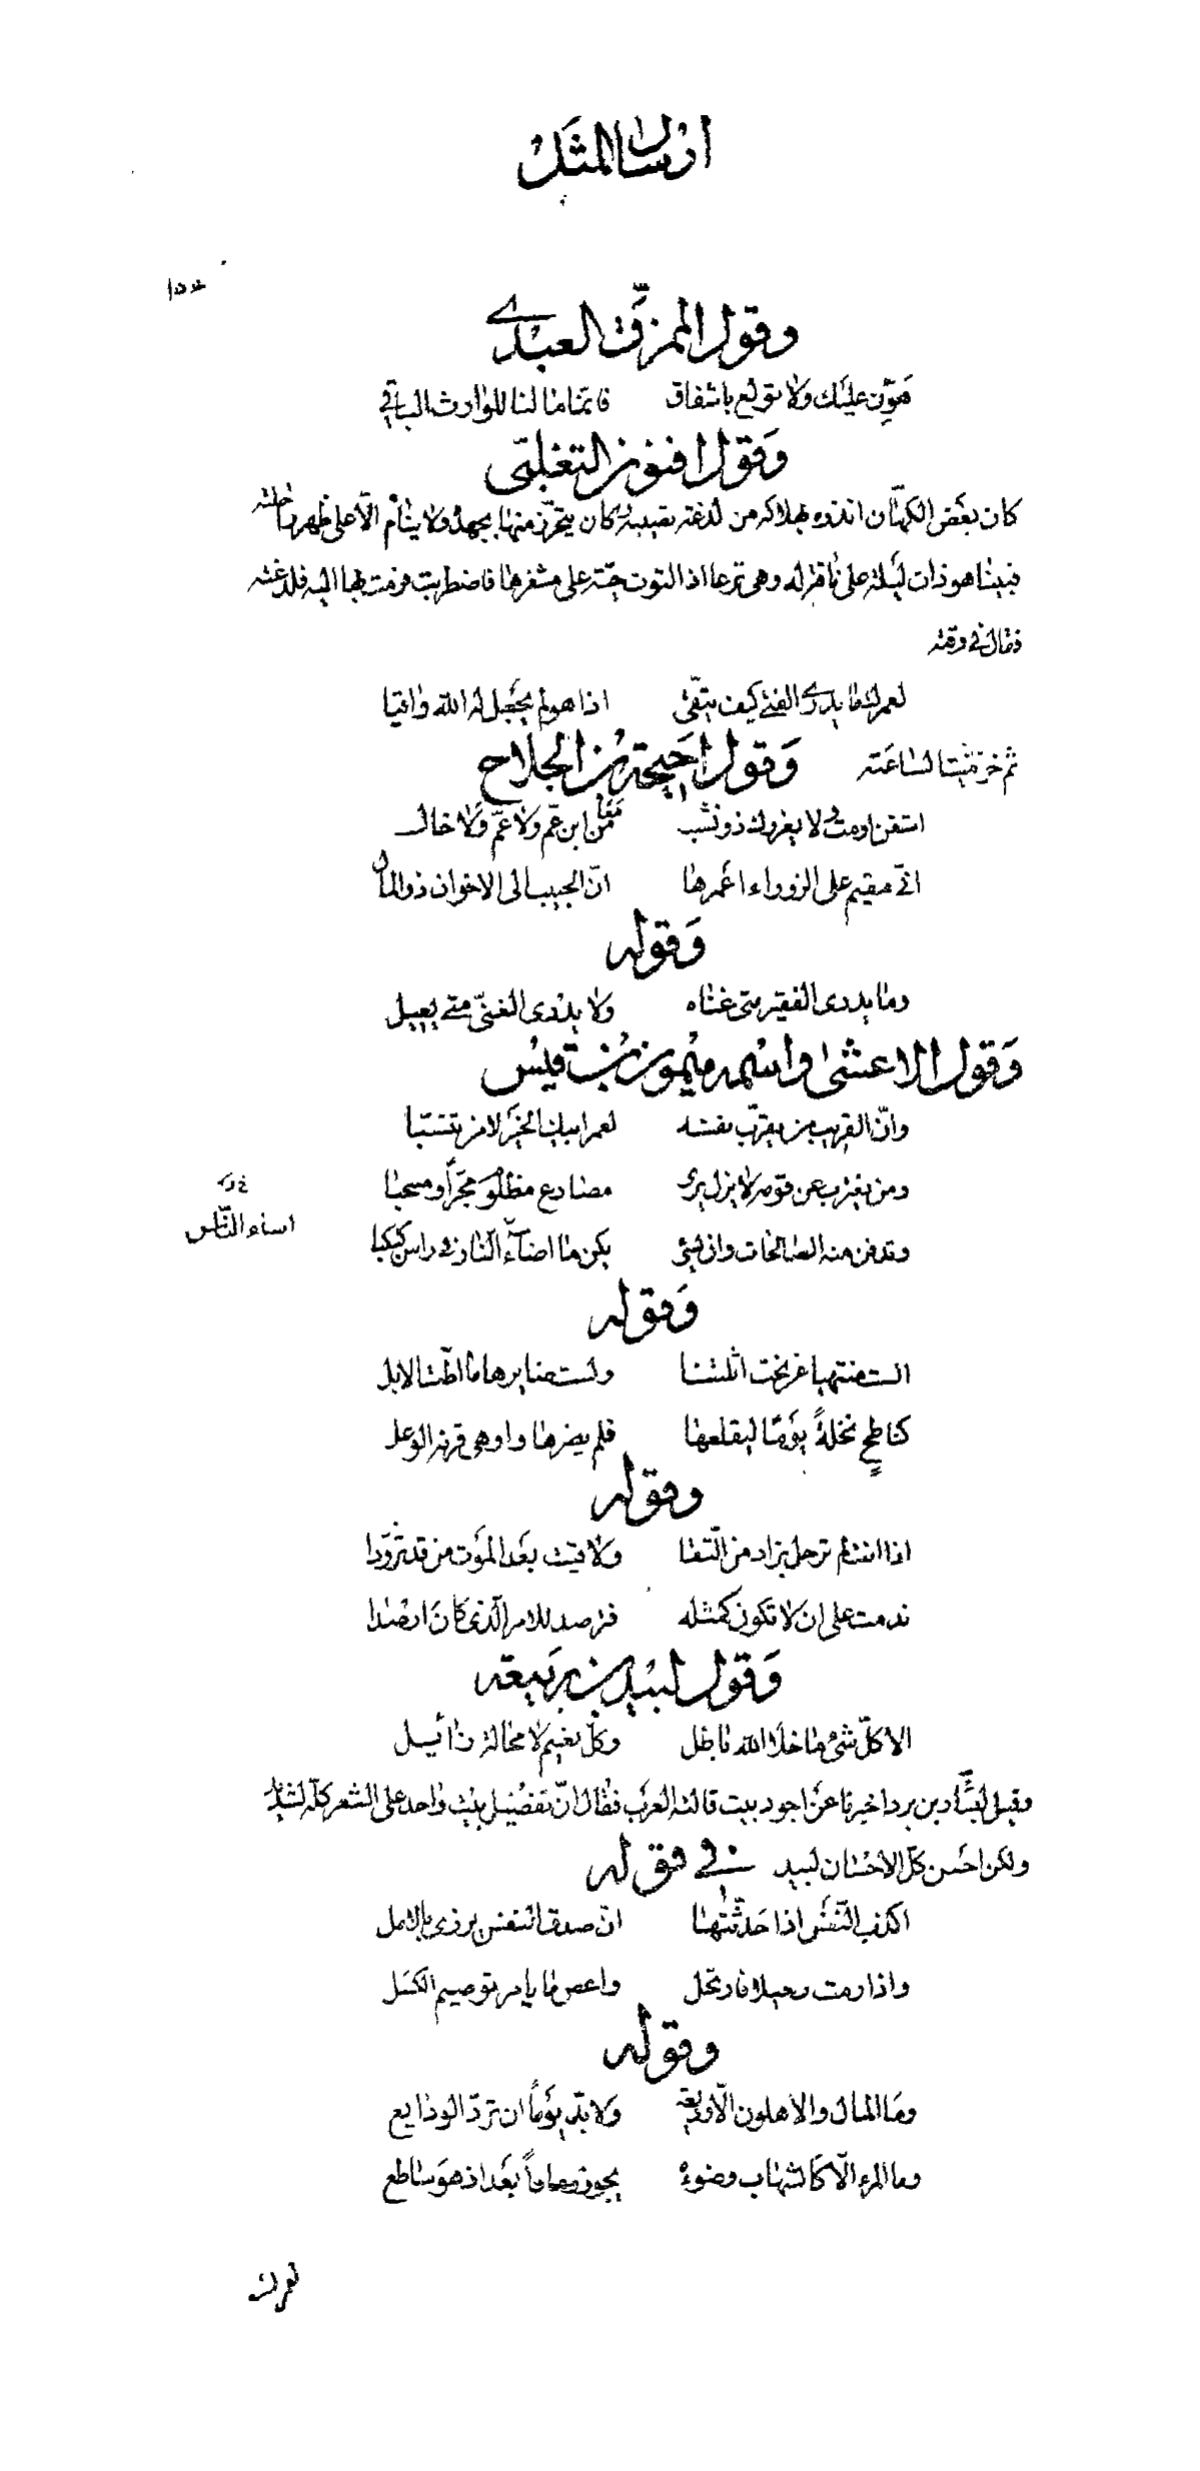 ارسال المثل
١٥٥
وقول الممزّق العبدي
هَوّن عليَك ولا تولع باشفاق فانّما مالنا للوارث الباقي
وَقول افنون التغلبي
كان بعَض الكهّان انذره بهلاكه من لدغة تصيبه وكان يتحرّز منها بجهده ولا ينام الّا على ظهر راحلته
فبينا هو ذات ليَلة على ناقة له وهى ترعا اذ التوت حيّة على مشفرها فاضطربت ورمت بها اليه فلدغته
فقال في وقته
لعمرك ما يدري الفتى كيف يتّقى اذا هو لم يجَعل له الله واقيا
ثم خرّ ميّتا لساعَته وَقول احَيحة بن الجلاح
استغن او مت ولا يغررك ذو نشب من ابن عمّ ولا عمّ وَلا خال
انّي مقيم على الزوراء اعَمرها انّ الحبيب الى الاخوان ذو المال
وَقوله
وما يدرى الفقير متى غناه ولا يدرى الغنىّ متى يعيل
وَقول الاعشى واسمه ميمون بن قيس
وانّ القريب من يقرّب نفسه لعمر ابيك الخيَر لا من تنسّبا
ومن يغترب عن قومه لا يزل يرى مصارع مظلوم مجَرّاً ومسحبا
وتدفن منه الصالحات وان يسئ يكن ما اساء النار فى راس كبكبا
اساء النّاس
وَقوله
الست منتهيا عن نحت اثلتنا ولست ضايرها ما اطّت الابل
كناطحٍ نخلةً يوَمًا ليقلعها فلم يضرها واوهى قرنه الوعل
وقوله
اذا انت لم ترحل بزاد من التّقا ولاقيت بعَد الموَت من قد تزوّدا
ندمت على ان لا تكون كمثله فترصد للامر الّذى كانَ ارصدا
وَقول لبيد بن ربَيعة
الا كلّ شئ ما خلا الله باطل وكلّ نعَيم لا محالة زائيل
وقيل لبشّار بن برد اخبرنا عَن اجود بيت قالته العَرب فقال انّ تفضيل بيت واحد على الشعر كلّه لشديد
ولكن احَسن كلّ الاحسان لبيد في قوله
اكذب النّفَس اذا حَدثّتها انّ صدق النفس يزرى بالامل
واذا رمت رحيلا فارتحل واعص ما يامر توصيم الكسَل
وقوله
ومَا المال والاهلون الّا وديَعة ولا بدّ يوَماً ان تردّ الودايع
وما المرء الّا كالشهاب وضوءهُ يحور رماداً بعَد اذ هوَ ساطع
لعمرك